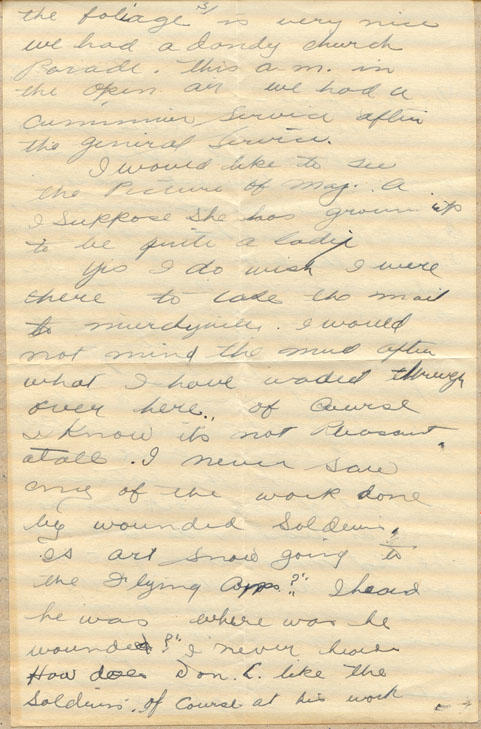 3/
the foliage is very nice
we had a dandy church
Parade. this a.m. in
the open air we had a
Cummimin Service after
the general Service.
I would like to see
the Picture of Mag. A.
I Suppose she has grown up
to be quite a lady
Yes I do wish I were
there to take the mail
to I would
not mind the mud after
what I have waded through
over here., of course
I Know its not Pleasant.
atall. I never saw
any of the work done
by wounded Soldiers.
Is art Snow going to
the Flying Corps?" I heard
he was where was he
wounded?" I never hear
How does Don. L. like the
Soldiers. of course at his work